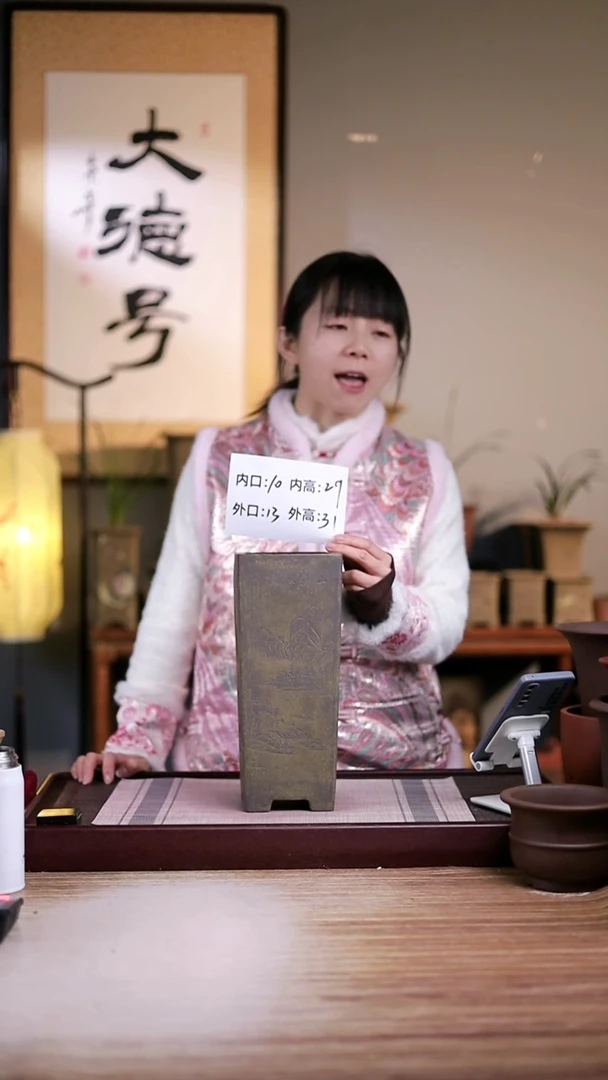 大德号
内口:10 内高:29
外口:13 外高:31